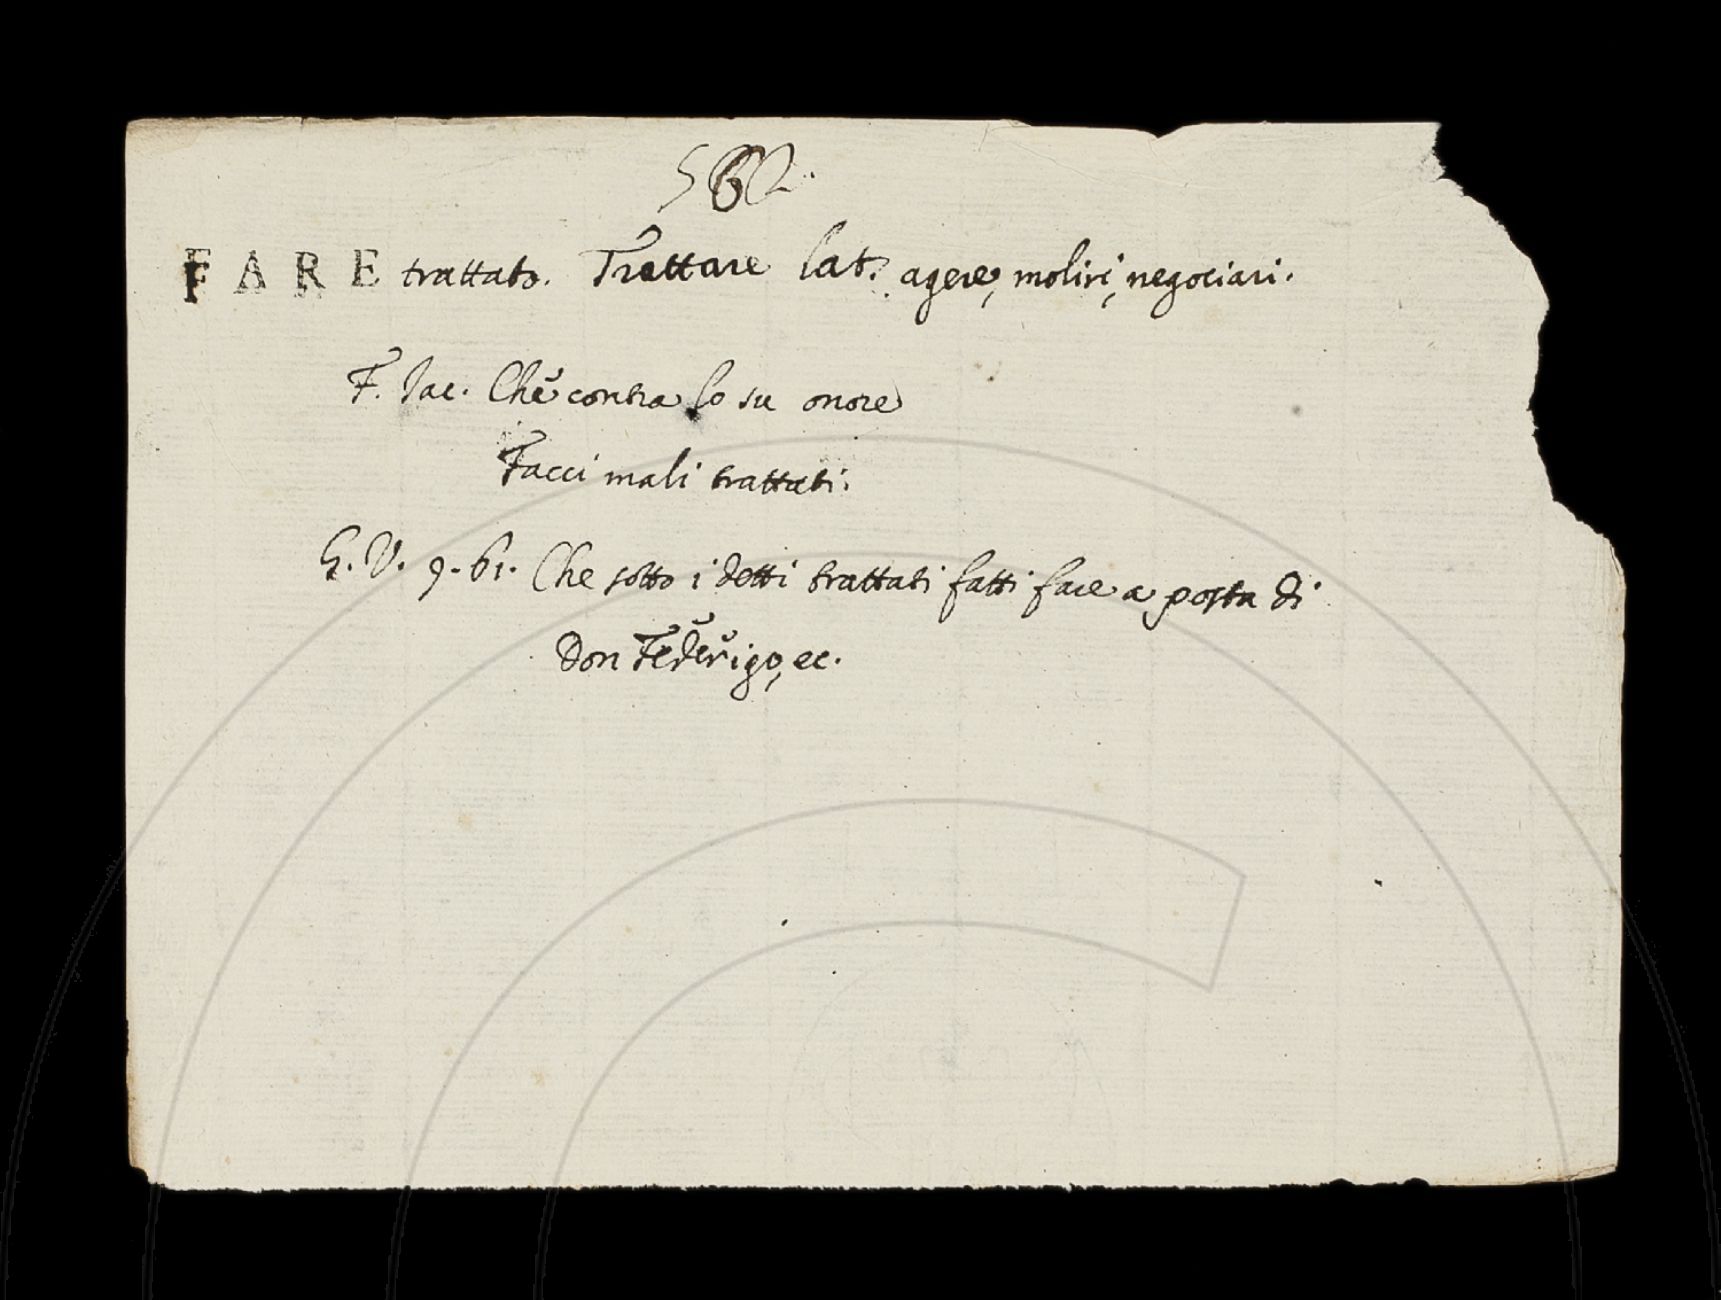 562.
FARE trattato. Trattare lat. agere, moliri, negociari.
F. Iac. Che contra lo su onore
Facci mali trattati.
G. V. 9. 61. Che sotto i detti trattati fatti fare a posta di
Don Federigo, ec.